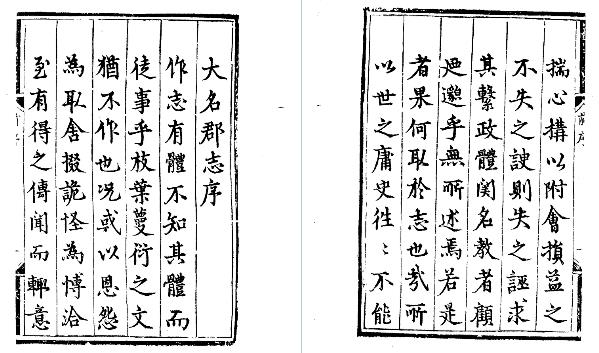 大名郡志序
作志有體不知其體而
徒事乎枝葉蔓衍之文
猶不作也况或以恩怨
為取舍掇詭怪為愽洽
至有得之傳聞而輒意
揣心搆以附會損益之
不失之諛則失之誣求
其繫政體関名教者顧
逈邈乎無所述焉若是
者果何取於志也哉所
以世之庸史徃〻不能